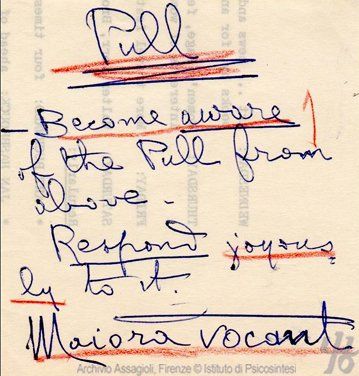 Pull
– Become aware
of the Pull from
above –
Respond joyous
ly to it.
Maiora vocant
Archivio Assagioli, Firenze © Istituto di Psicosintesi